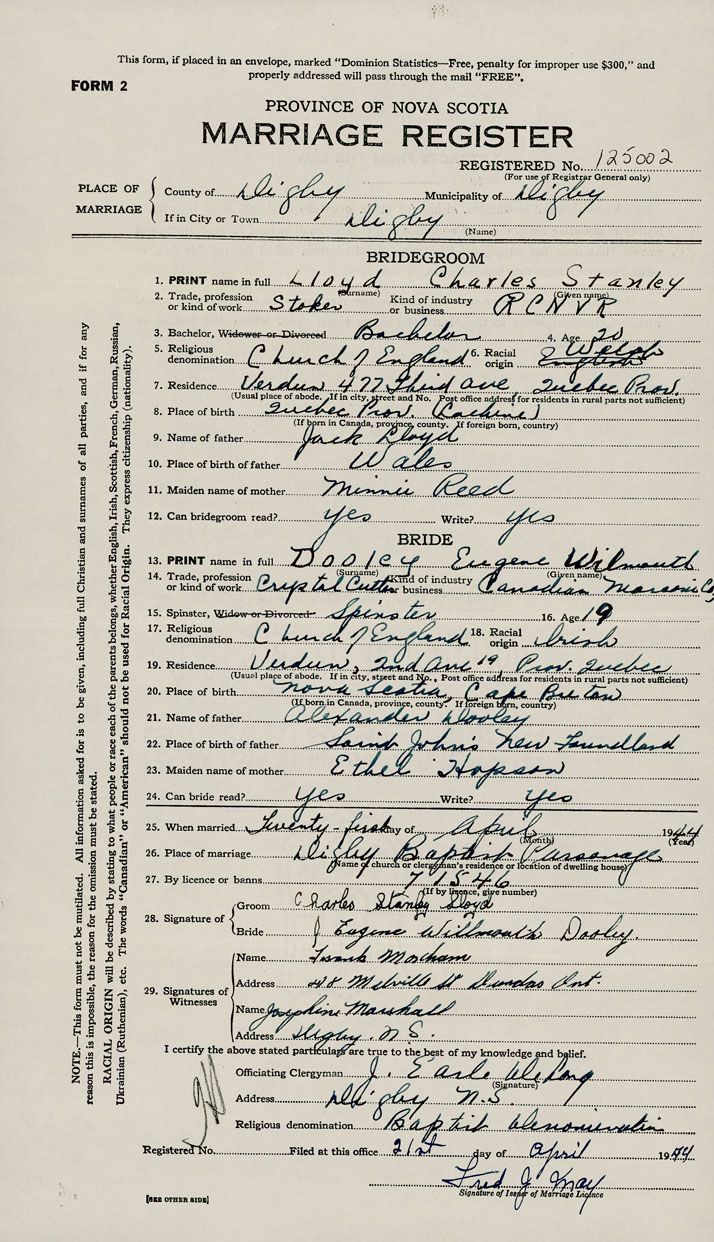 This form, if placed in an envelope, marked "Dominion Statistics—Free, penalty for improper use $300," and
properly addressed will pass through the mail "FREE".
FORM 2
PROVINCE OF NOVA SCOTIA
MARRIAGE REGISTER
REGISTERED No. 125002
(For use of Registrar General only)
PLACE OF MARRIAGE
County of Digby Municipality of Digby
If in City or Town Digby
(Name)
BRIDEGROOM
1. PRINT name in full Lloyd Charles Stanley
(Surname) (Given name)
2. Trade, profession or kind of work Stoker Kind of industry or business RCNVR
3. Bachelor, Widower or Divorced Bachelor 4. Age 20
5. Religious denomination Church of England 6. Racial origin English Welsh
7. Residence Verdun 477 Third ave, Quebec Prov.
(Usual place of abode. If in city, street and No. Post office address for residents in rural parts not sufficient)
8. Place of birth Quebec Prov. (Lachine)
(If born in Canada, province, county. If foreign born, country)
9. Name of father Jack Lloyd
10. Place of birth of father Wales
11. Maiden name of mother Minnie Reed
12. Can bridegroom read? yes Write? yes
BRIDE
13. PRINT name in full Dooley Eugene Wilmouth
(Surname) (Given name)
14. Trade, profession or kind of work Crystal Cutter Kind of industry or business Canadian Marconi Co,
15. Spinster, Widow or Divorced Spinster 16. Age 19
17. Religious denomination Church of England 18. Racial origin Irish
19. Residence Verdun, 2nd ave 19, Prov. Quebec
(Usual place of abode. If in city, street and No. Post office address for residents in rural parts not sufficient)
20. Place of birth Nova Scotia, Cape Breton
(If born in Canada, province, county. If foreign born, country)
21. Name of father Alexander Dooley
22. Place of birth of father Saint John's New Foundland
23. Maiden name of mother Ethel Hopson
24. Can bride read? yes Write? yes
25. When married Twenty-first day of April 1944
(Month) (Year)
26. Place of marriage Digby Baptist Parsonage
(Name of church or clergyman's residence or location of dwelling house)
27. By licence or banns 71546
(If by licence, give number)
28. Signature of
Groom Charles Stanley Lloyd
Bride Eugene Willmouth Dooley.
29. Signatures of Witnesses
Name Frank
Address 48 Melville St Dundas Ont.
Name Josephine Marshall
Address Digby. N.S.
I certify the above stated particulars are true to the best of my knowledge and belief.
Officiating Clergyman J. Earle
(Signature)
Address Digby N.S.
Religious denomination Baptist Denomination
Registered No. Filed at this office 21st day of April 1944
Fred J. May
Signature of Issuer of Marriage Licence
[SEE OTHER SIDE]
NOTE.—This form must not be mutilated. All information asked for is to be given, including full Christian and surnames of all parties, and if for any
reason this is impossible, the reason for the omission must be stated.
RACIAL ORIGIN will be described by stating to what people or race each of the parents belongs, whether English, Irish, Scottish, French, German, Russian,
Ukrainian (Ruthenian), etc. The words "Canadian" or "American" should not be used for Racial Origin. They express citizenship (nationality).